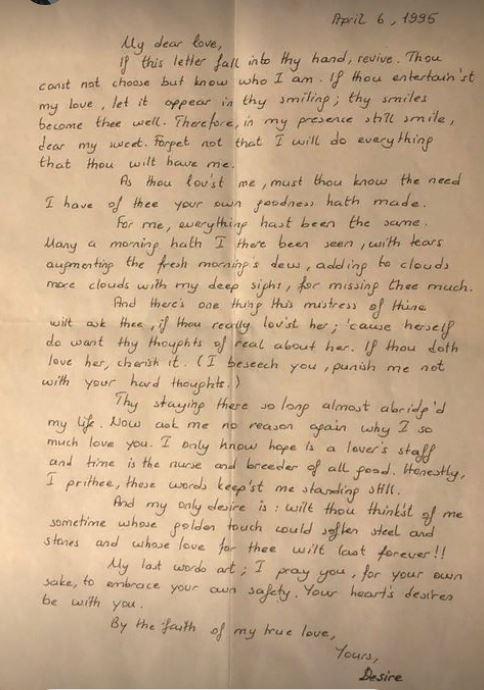 April 6, 1995
My dear love,
If this letter fall into thy hand, revive. Thou
canst not choose but know who I am. If thou entertain'st
my love, let it appear in thy smiling; thy smiles
become thee well. Therefore, in my presence still smile,
dear my sweet. Forget not that I will do everything
that thou wilt have me.
As thou lov'st me, must thou know the need
I have of thee your own goodness hath made.
For me, everything hast been the same.
Many a morning hath I there been seen, with tears
augmenting the fresh morning's dew, adding to clouds
more clouds with my deep sighs, for missing thee much.
And there's one thing this mistress of thine
wilt ask thee, if thou really lov'st her; 'cause herself
do want thy thoughts of real about her. If thou doth
love her, cherish it. (I beseech you, punish me not
with your hard thoughts.)
Thy staying there so long almost abridg'd
my life. Now ask me no reason again why I so
much love you. I only know hope is a lover's staff
and time is the nurse and breeder of all good. Honestly,
I prithee, these words keep'st me standing still.
And my only desire is: wilt thou think'st of me
sometime whose golden touch could soften steel and
stones and whose love for thee wilt last forever!!
My last words art; I pray you, for your own
sake, to embrace your own safety. Your heart's desires
be with you.
By the faith of my true love,
Yours,
Desire